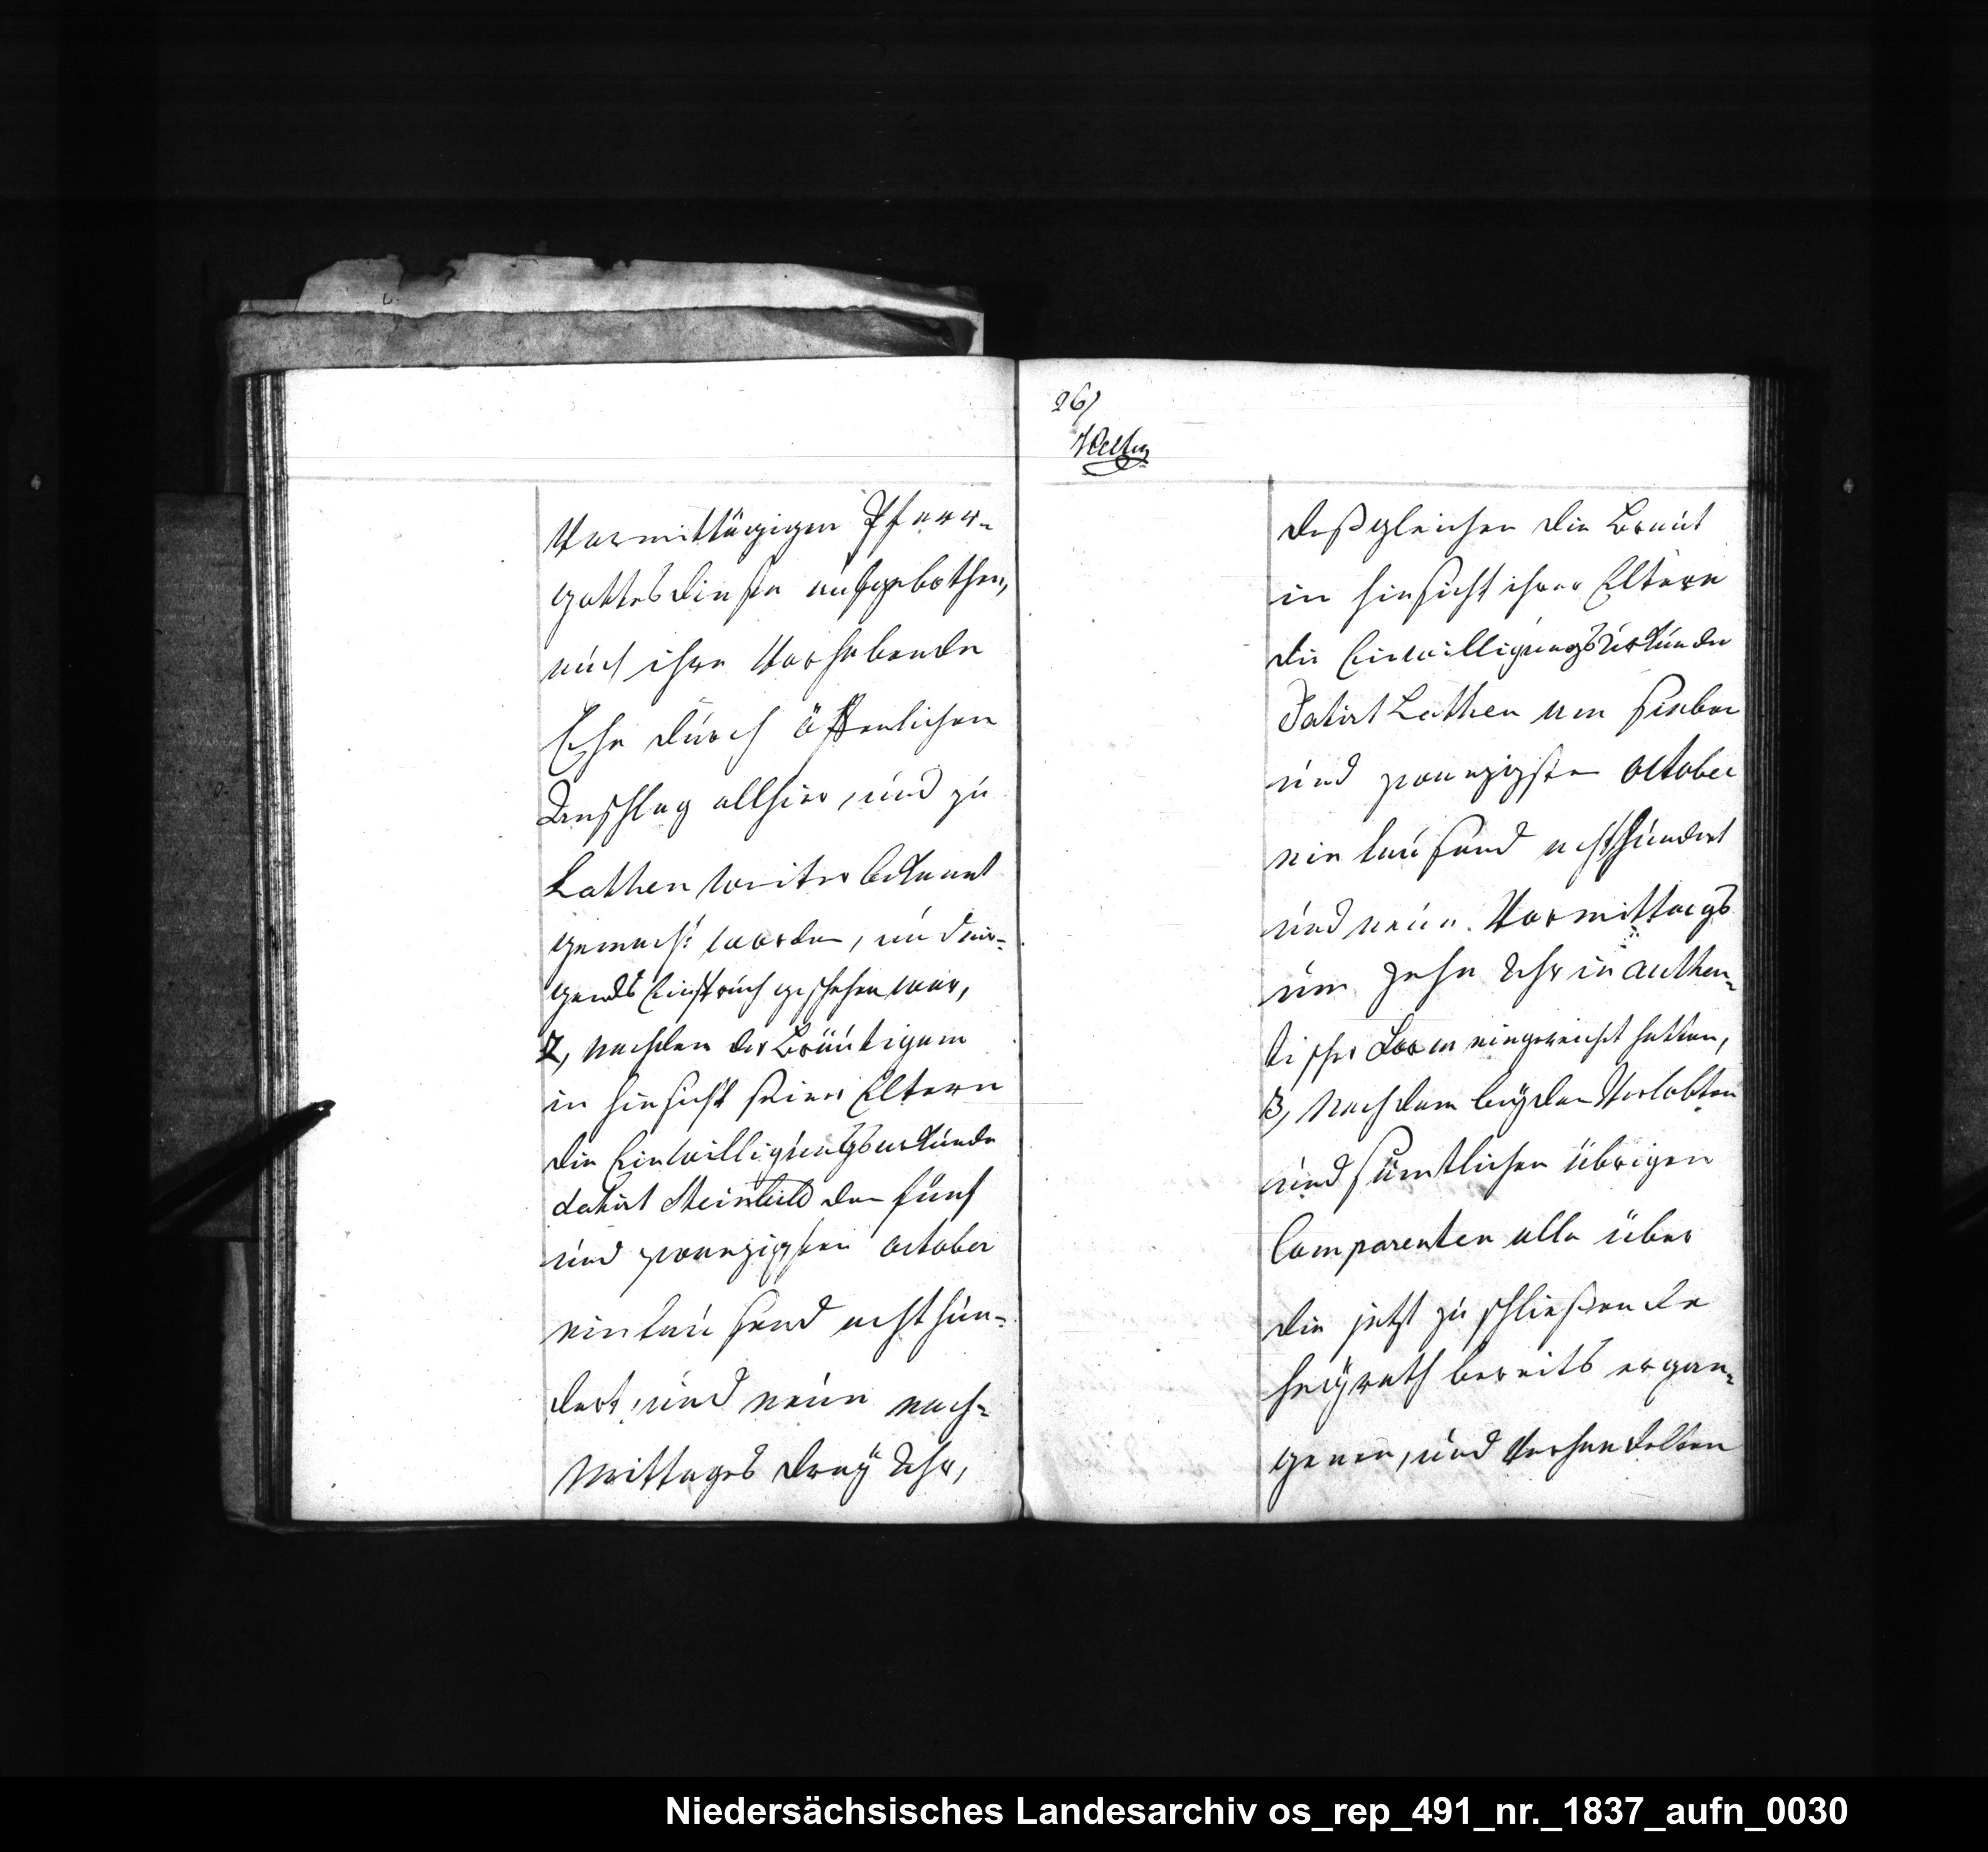 Vormittägigen Pfarr-
gottesdienste aufgebothen,
auch ihre Vorhabende
Ehe durch öffenlichen
Anschlag allhier, und zu
Lathen weiter bekannt
gemacht worden, und nir-
gends Einspruch geschehen war,
2, nachdem der Bräutigam
in hinsicht seiner Eltern
die Einwilligungsurkunde
datirt Steinbild den fünf
und zwanzigsten october
ein tausend acht hun-
dert, und neun nach-
Mittages dreÿ Uhr,
26)
deßgleichen die Braut
in hinsicht ihrer Eltern
die Einwilligungsurkunde
Datirt Lathen am sieben
und zwanzigsten october
ein tausend achthundert
und neun Vormittags
um zehn Uhr in authen-
tischer Form eingereicht hatten,
3, Nachdem beÿden Verlobten
und sämtlichen übrigen
Comparenten alle über
die jetzt zu schließende
heÿrath bereits ergan-
genen, und Verhandelten
Niedersächsisches Landesarchiv os_rep_491_nr._1837_aufn_0030